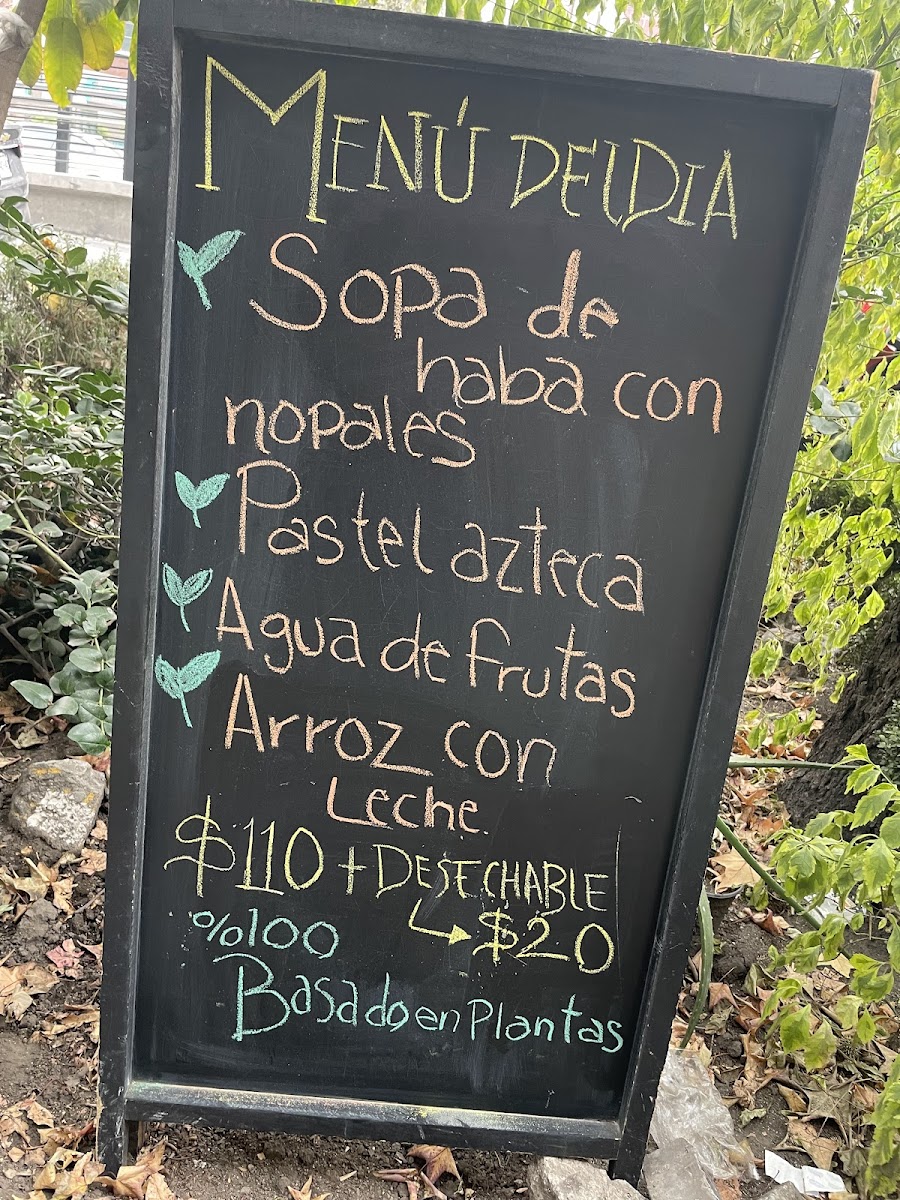 MENÚ DELDIA
Sopa de
haba con
nopales
Pastel azteca
Agua de frutas
Arroz con
Leche.
$110 + DESECHABLE
$20
%100
Basado en Plantas